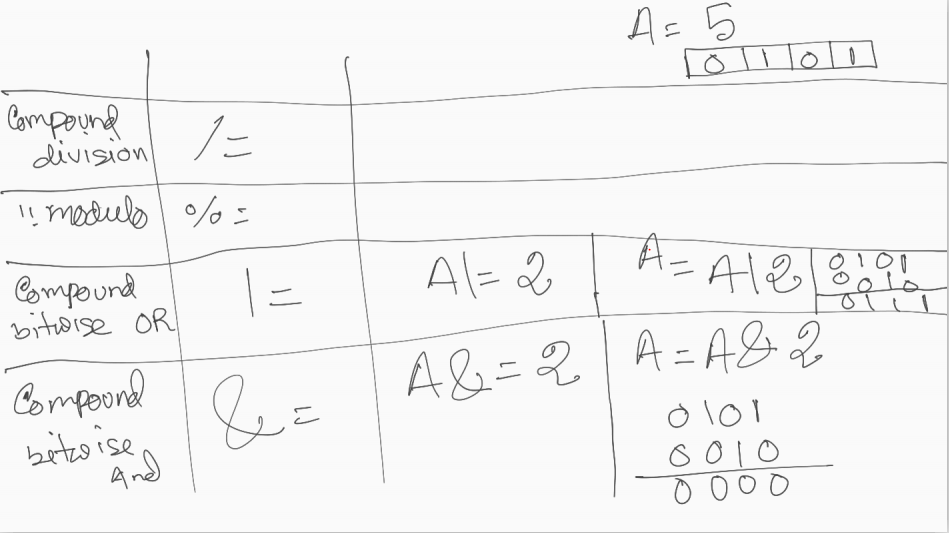 A = 5
0 1 0 1
Compound
division
/=
" modulo
%=
Compound
bitwise OR
|=
A|= 2
A = A|2
0101
0010
0111
Compound
bitwise
And
&=
A&= 2
A = A& 2
0101
0010
0000